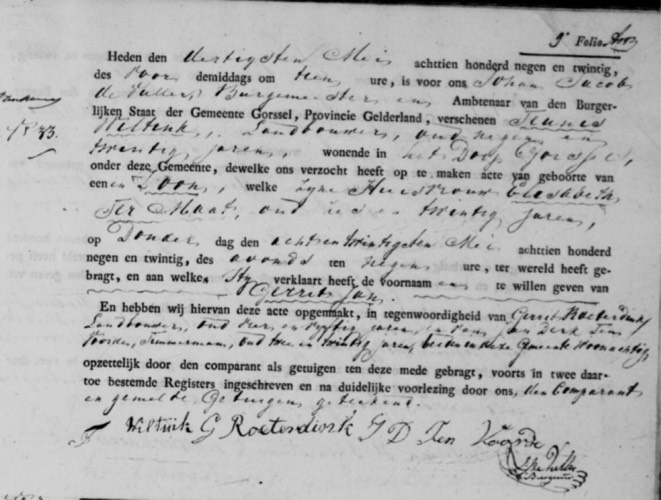 9e Folio
Heden den dertigsten Mei achttien honderd negen en twintig,
des voor demiddags om tien ure, is voor ons Johan Jacob
de Vuller, Burgemeester en Ambtenaar van den Burger-
lijken Staat der Gemeente Gorssel, Provincie Gelderland, verschenen Teunis
Wiltink, Landbouwer, oud negen en
twintig jaren, wonende in het Dorp Gorssel,
onder deze Gemeente, dewelke ons verzocht heeft op te maken acte van geboorte van
een Zoon, welke zyne Huisvrouw Elisabeth
Ter Maat, oud zes en twintig jaren,
op Donder dag den achtentwintigsten Mei achttien honderd
negen en twintig, des avonds ten negen ure, ter wereld heeft ge-
bragt, en aan welke Hy verklaart heeft de voornamen te willen geven van
Gerrit Jan.
En hebben wij hiervan deze acte opgemaakt, in tegenwoordigheid van Gerrit Roeterdink
Landbouwer, oud vier en vyftig jaren, en van Jan Derk Ten
Voorde, Timmerman, oud twee en twintig jaren, beiden in deze Gemeente woonachtig,
opzettelijk door den comparant als getuigen ten deze mede gebragt, voorts in twee daar-
toe bestemde Registers ingeschreven en na duidelijke voorlezing door ons, den Comparant
en gemelde Getuigen geteekend.
T Wiltink G Roeterdink J D Ten Voorde
Burgemeester